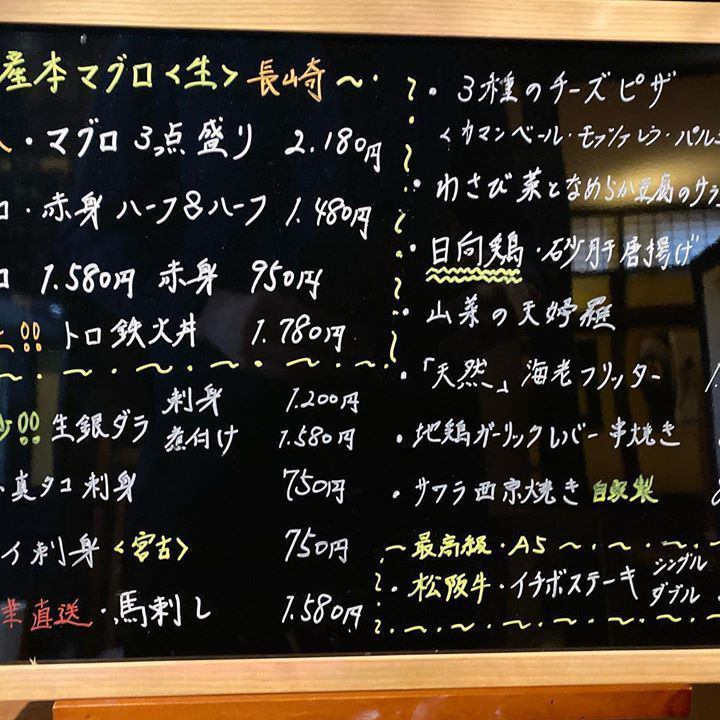 産本マグロ<生>長崎
・マグロ3点盛り 2.180円
・赤身ハーフ&ハーフ 1.480円
ロ 1.580円 赤身 950円
!! トロ鉄火丼 1.780円
!! 生銀ダラ 刺身 1.200円
煮付け 1.580円
真タコ刺身 750円
イ刺身<宮古> 750円
直送・馬刺し 1.580円
・3種のチーズピザ
<カマンベール・モッツァレラ・パルミ
・わさび菜となめらか豆腐のサラ
・日向鶏・砂肝唐揚げ
・山菜の天婦羅
・「天然」海老フリッター
・地鶏ガーリックレバー串焼き
・サワラ西京焼き 自家製
最高級・A5
・松阪牛・イチボステーキ シングル
ダブル